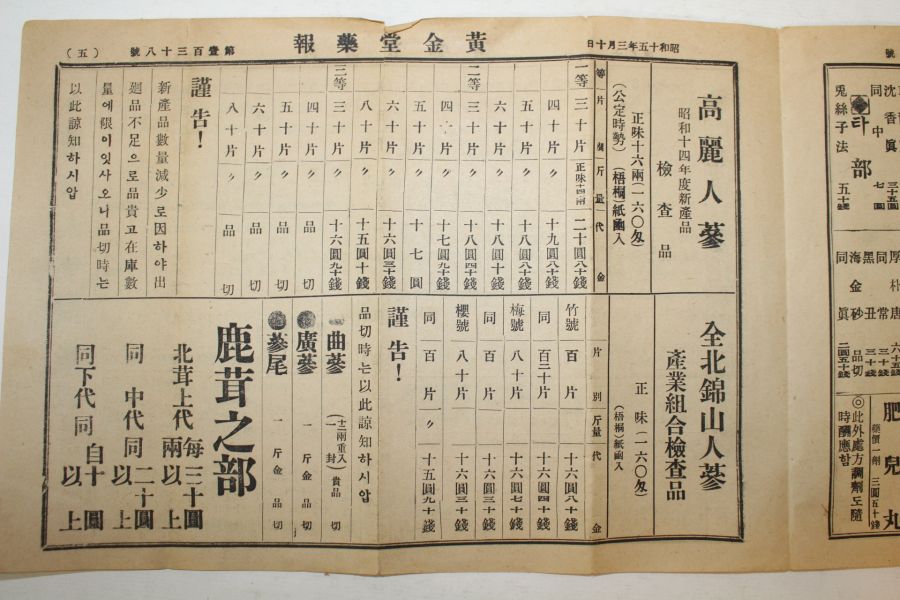 昭和十五年三月十日
黃金堂藥報
第壹百三十八號
（五）
高麗人蔘
昭和十四年度新產品
檢査品
正味十六兩(一六〇匁)
(公定時勢) (梧桐)紙凾入
等 片 個 斤量 代金
一等 三十片 正味十四兩 二十圓八十錢
四十片 〃 十九圓八十錢
五十片 〃 十八圓八十錢
六十片 〃 十八圓十錢
二等 三十片 〃 十八圓四十錢
四十片 〃 十七圓九十錢
五十片 〃 十七圓
六十片 〃 十六圓三十錢
八十片 〃 十五圓十錢
三等 三十片 〃 十六圓九十錢
四十片 〃 品切
五十片 〃 品切
六十片 〃 品切
八十片 〃 品切
謹告！
新產品數量減少로因하야出
廻品不足으로品貴고在庫數
量에限이잇사오니品切時는
以此諒知하시압
全北錦山人蔘
產業組合檢查品
正味(一六〇匁)
(梧桐)紙凾入
片別 斤量 代金
竹號 百片 十六圓八十錢
同 百三十片 十六圓四十錢
梅號 八十片 十六圓七十錢
同 百片 十六圓三十錢
櫻號 八十片 十六圓三十錢
同 百片 〃 十五圓九十錢
謹告！
品切時는以此諒知하시압
曲蔘 (十二兩重入封) 貴品切
廣蔘 一斤金品切
蔘尾 一斤金品切
鹿茸之部
北茸上代 每兩 三十圓以上
同 中代 同 二十圓以上
同下代同 自十圓以上
號
沈香 三十五圓
同中眞 七圓
타部
兎絲子法 五十錢
厚朴唐 六十五錢
同常 三十錢
黑丑 三十錢
海金砂 品切
同眞 二圓五十錢
肥兒丸
藥價一劑 三圓五十錢
◎此外處方調劑도隨
時酬應함